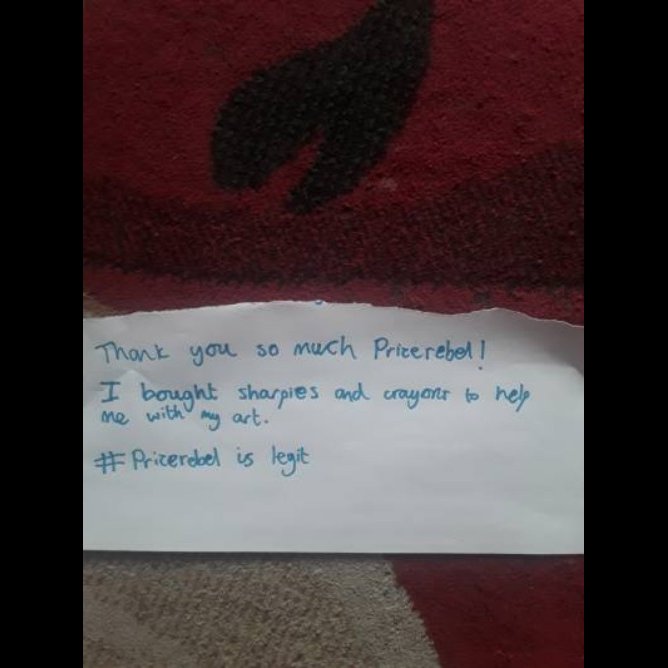 Thank you so much Pricerebel!
I bought sharpies and crayons to help
me with my art.
#Pricerebel is legit